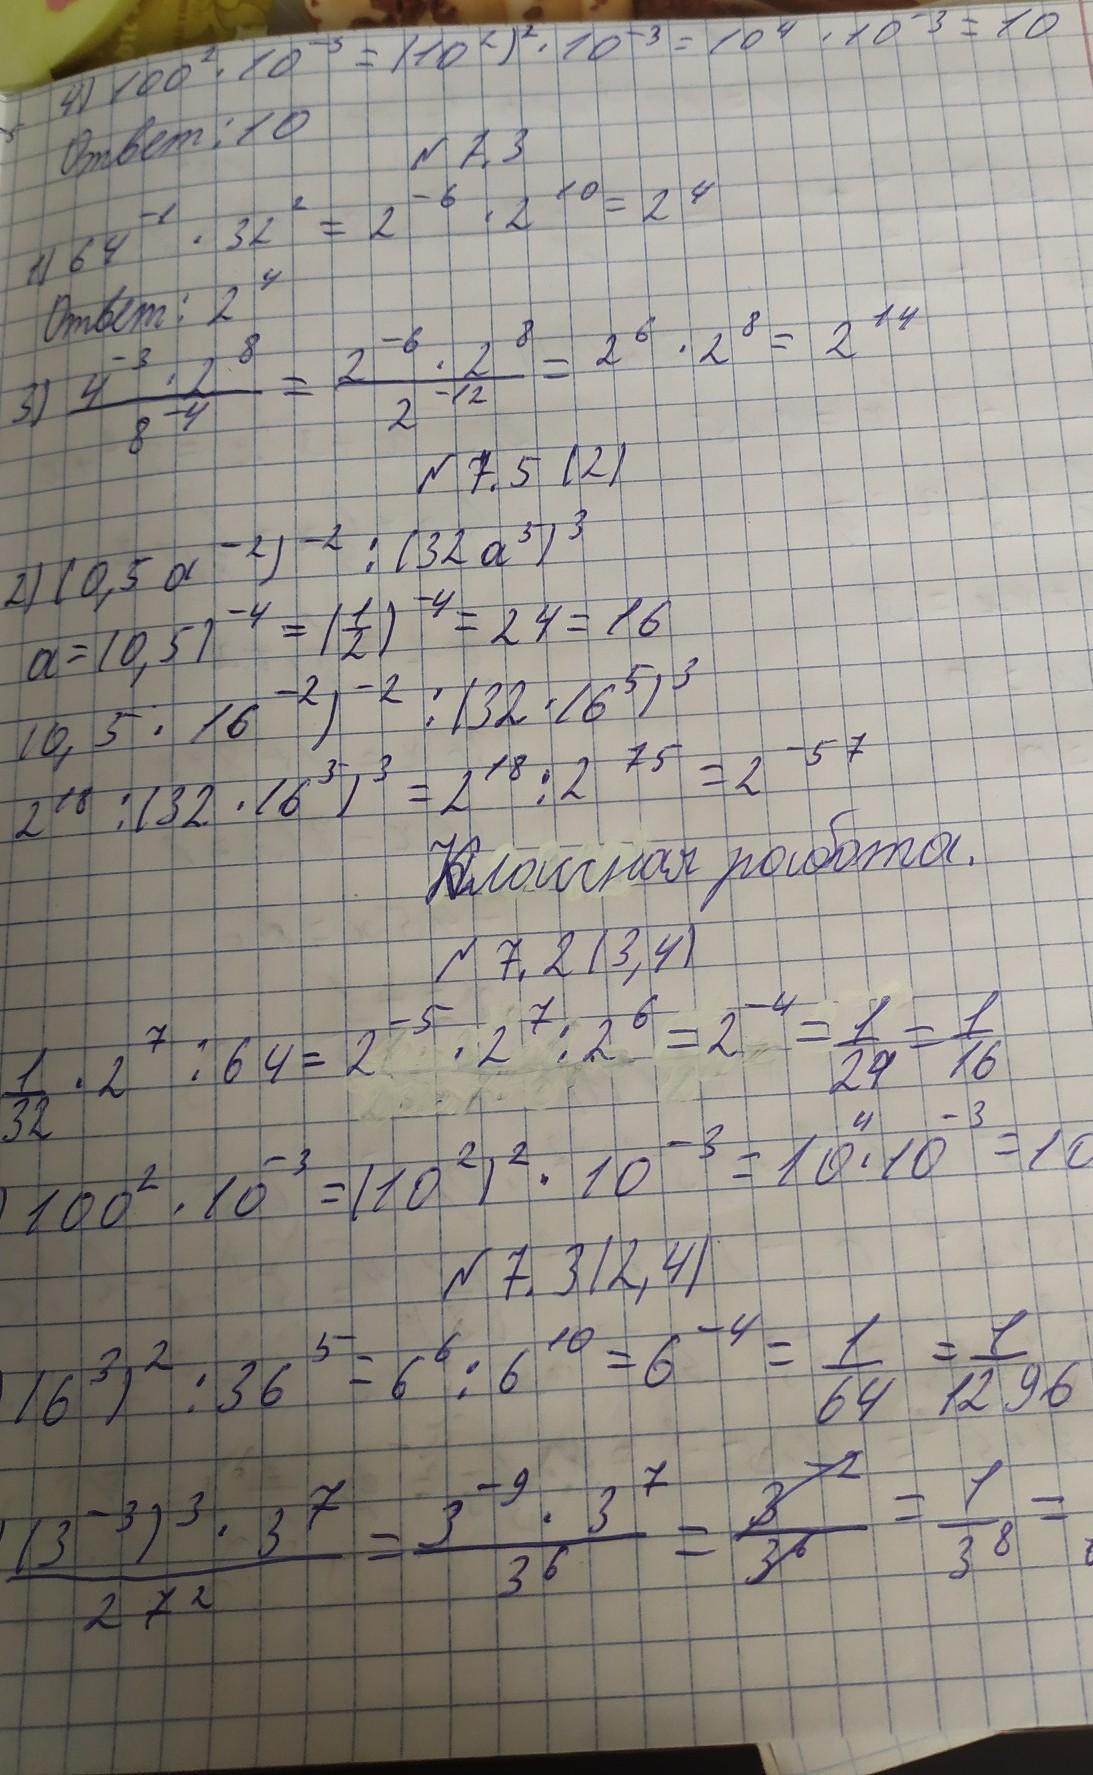 4) 100² · 10⁻³ = (10²)² · 10⁻³ = 10⁴ · 10⁻³ = 10
Ответ: 10
N 7.3
1) 64⁻¹ · 32² = 2⁻⁶ · 2¹⁰ = 2⁴
Ответ: 2⁴
3) (4⁻³ · 2⁸)/(8⁻⁴) = (2⁻⁶ · 2⁸)/(2⁻¹²) = 2⁶ · 2⁸ = 2¹⁴
N 7.5 (2)
2) (0,5a⁻²)⁻² : (32a⁵)³
a = (0,5)⁻⁴ = (1/2)⁻⁴ = 24 = 16
(0,5 · 16⁻²)⁻² : (32 · 16⁵)³
2¹⁸ : (32 · 16⁵)³ = 2¹⁸ : 2⁷⁵ = 2⁻⁵⁷
Классная работа.
N 7.2 (3,4)
1/32 · 2⁷ : 64 = 2⁻⁵ · 2⁷ : 2⁶ = 2⁻⁴ = 1/24 = 1/16
) 100² · 10⁻³ = (10²)² · 10⁻³ = 10⁴ · 10⁻³ = 10
N 7.3 (2,4)
) (6³)² : 36⁵ = 6⁶ : 6¹⁰ = 6⁻⁴ = 1/64 = 1/1296
) ((3⁻³)³ · 3⁷)/(27²) = (3⁻⁹ · 3⁷)/(3⁶) = 3⁻²/3⁶ = 1/3⁸ =